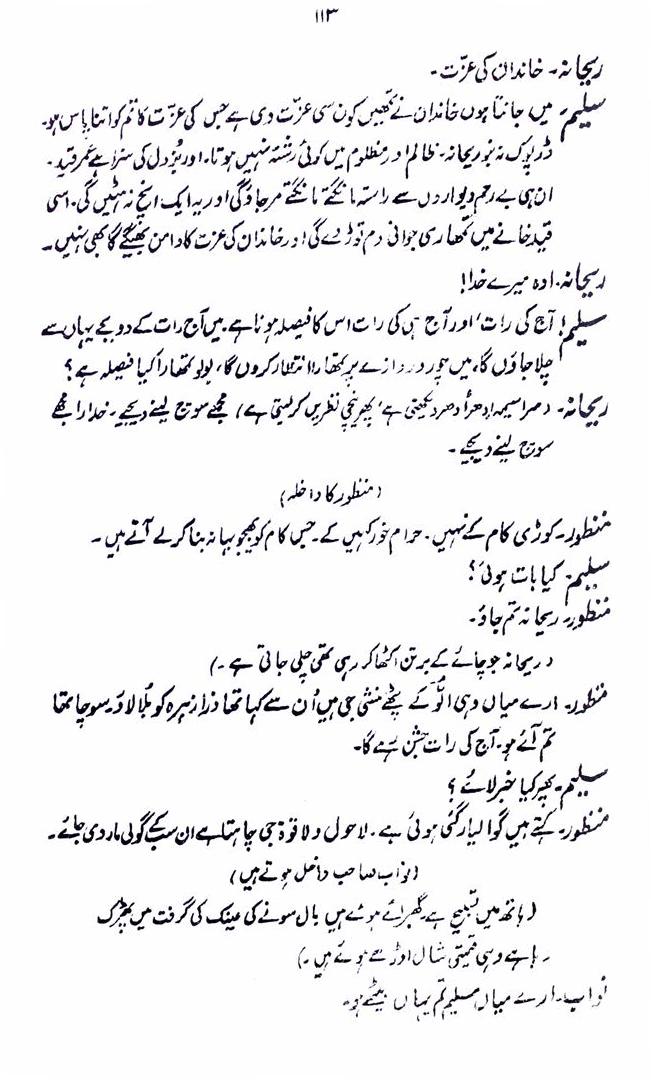 ۱۱۳
ریحانہ۔ خاندان کی عزّت۔
سلیم۔ میں جانتا ہوں خاندان نے تمھیں کون سی عزّت دی ہے جس کی عزّت کا تم کو اتنا پاس ہو۔
ڈرپوک نہ بنو ریحانہ۔ ظالم اور مظلوم میں کوئی رشتہ نہیں ہوتا۔ اور بُزدل کی سزا ہے عمر قید۔
ان ہی بے رحم دیواروں سے راستہ مانگتے مانگتے مر جاؤ گی اور یہ ایک انچ نہ ہٹیں گی۔ اسی
قید خانے میں تمھاری جوانی دم توڑ دے گی اور خاندان کی عزت کا دامن بھیگے گا بھی نہیں۔
ریحانہ۔ اوہ میرے خدا!
سلیم! آج کی رات، اور آج ہی کی رات اس کا فیصلہ ہونا ہے۔ میں آج رات کے دو بجے یہاں سے
چلا جاؤں گا، میں چور دروازے پر تمھارا انتظار کروں گا، بولو تمھارا کیا فیصلہ ہے؟
ریحانہ۔ (سراسیمہ اِدھر اُدھر دیکھتی ہے، پھر نیچی نظریں کر لیتی ہے) مجھے سوچ لینے دیجیے۔ خدارا مجھے
سوچ لینے دیجیے۔
(منظور کا داخلہ)
منظور۔ کوڑی کام کے نہیں۔ حرام خور کہیں کے۔ جس کام کو بھیجو بہانہ بنا کر لے آتے ہیں۔
سلیم۔ کیا بات ہوئی؟
منظور۔ ریحانہ تم جاؤ۔
(ریحانہ جو چائے کے برتن اکٹھا کر رہی تھی چلی جاتی ہے۔)
منظور۔ ارے میاں وہی الّو کے پٹھے منشی جی ہیں اُن سے کہا تھا ذرا زہرہ کو بُلا لاؤ۔ سوچا تھا
تم آئے ہو۔ آج کی رات جشن رہے گا۔
سلیم۔ پھر کیا خبر لائے؟
منظور۔ کہتے ہیں گوالیار گئی ہوئی ہے۔ لاحول ولا قوۃ جی چاہتا ہے ان سب کے گولی مار دی جائے۔
(نواب صاحب داخل ہوتے ہیں)
(ہاتھ میں تسبیح ہے۔ گھبرائے ہوئے ہیں بال سونے کی عینک کی گرفت میں پھڑک
رہا ہے وہی قیمتی شال اوڑھے ہوئے ہیں۔)
نواب۔ ارے میاں سلیم تم یہاں بیٹھے ہو۔